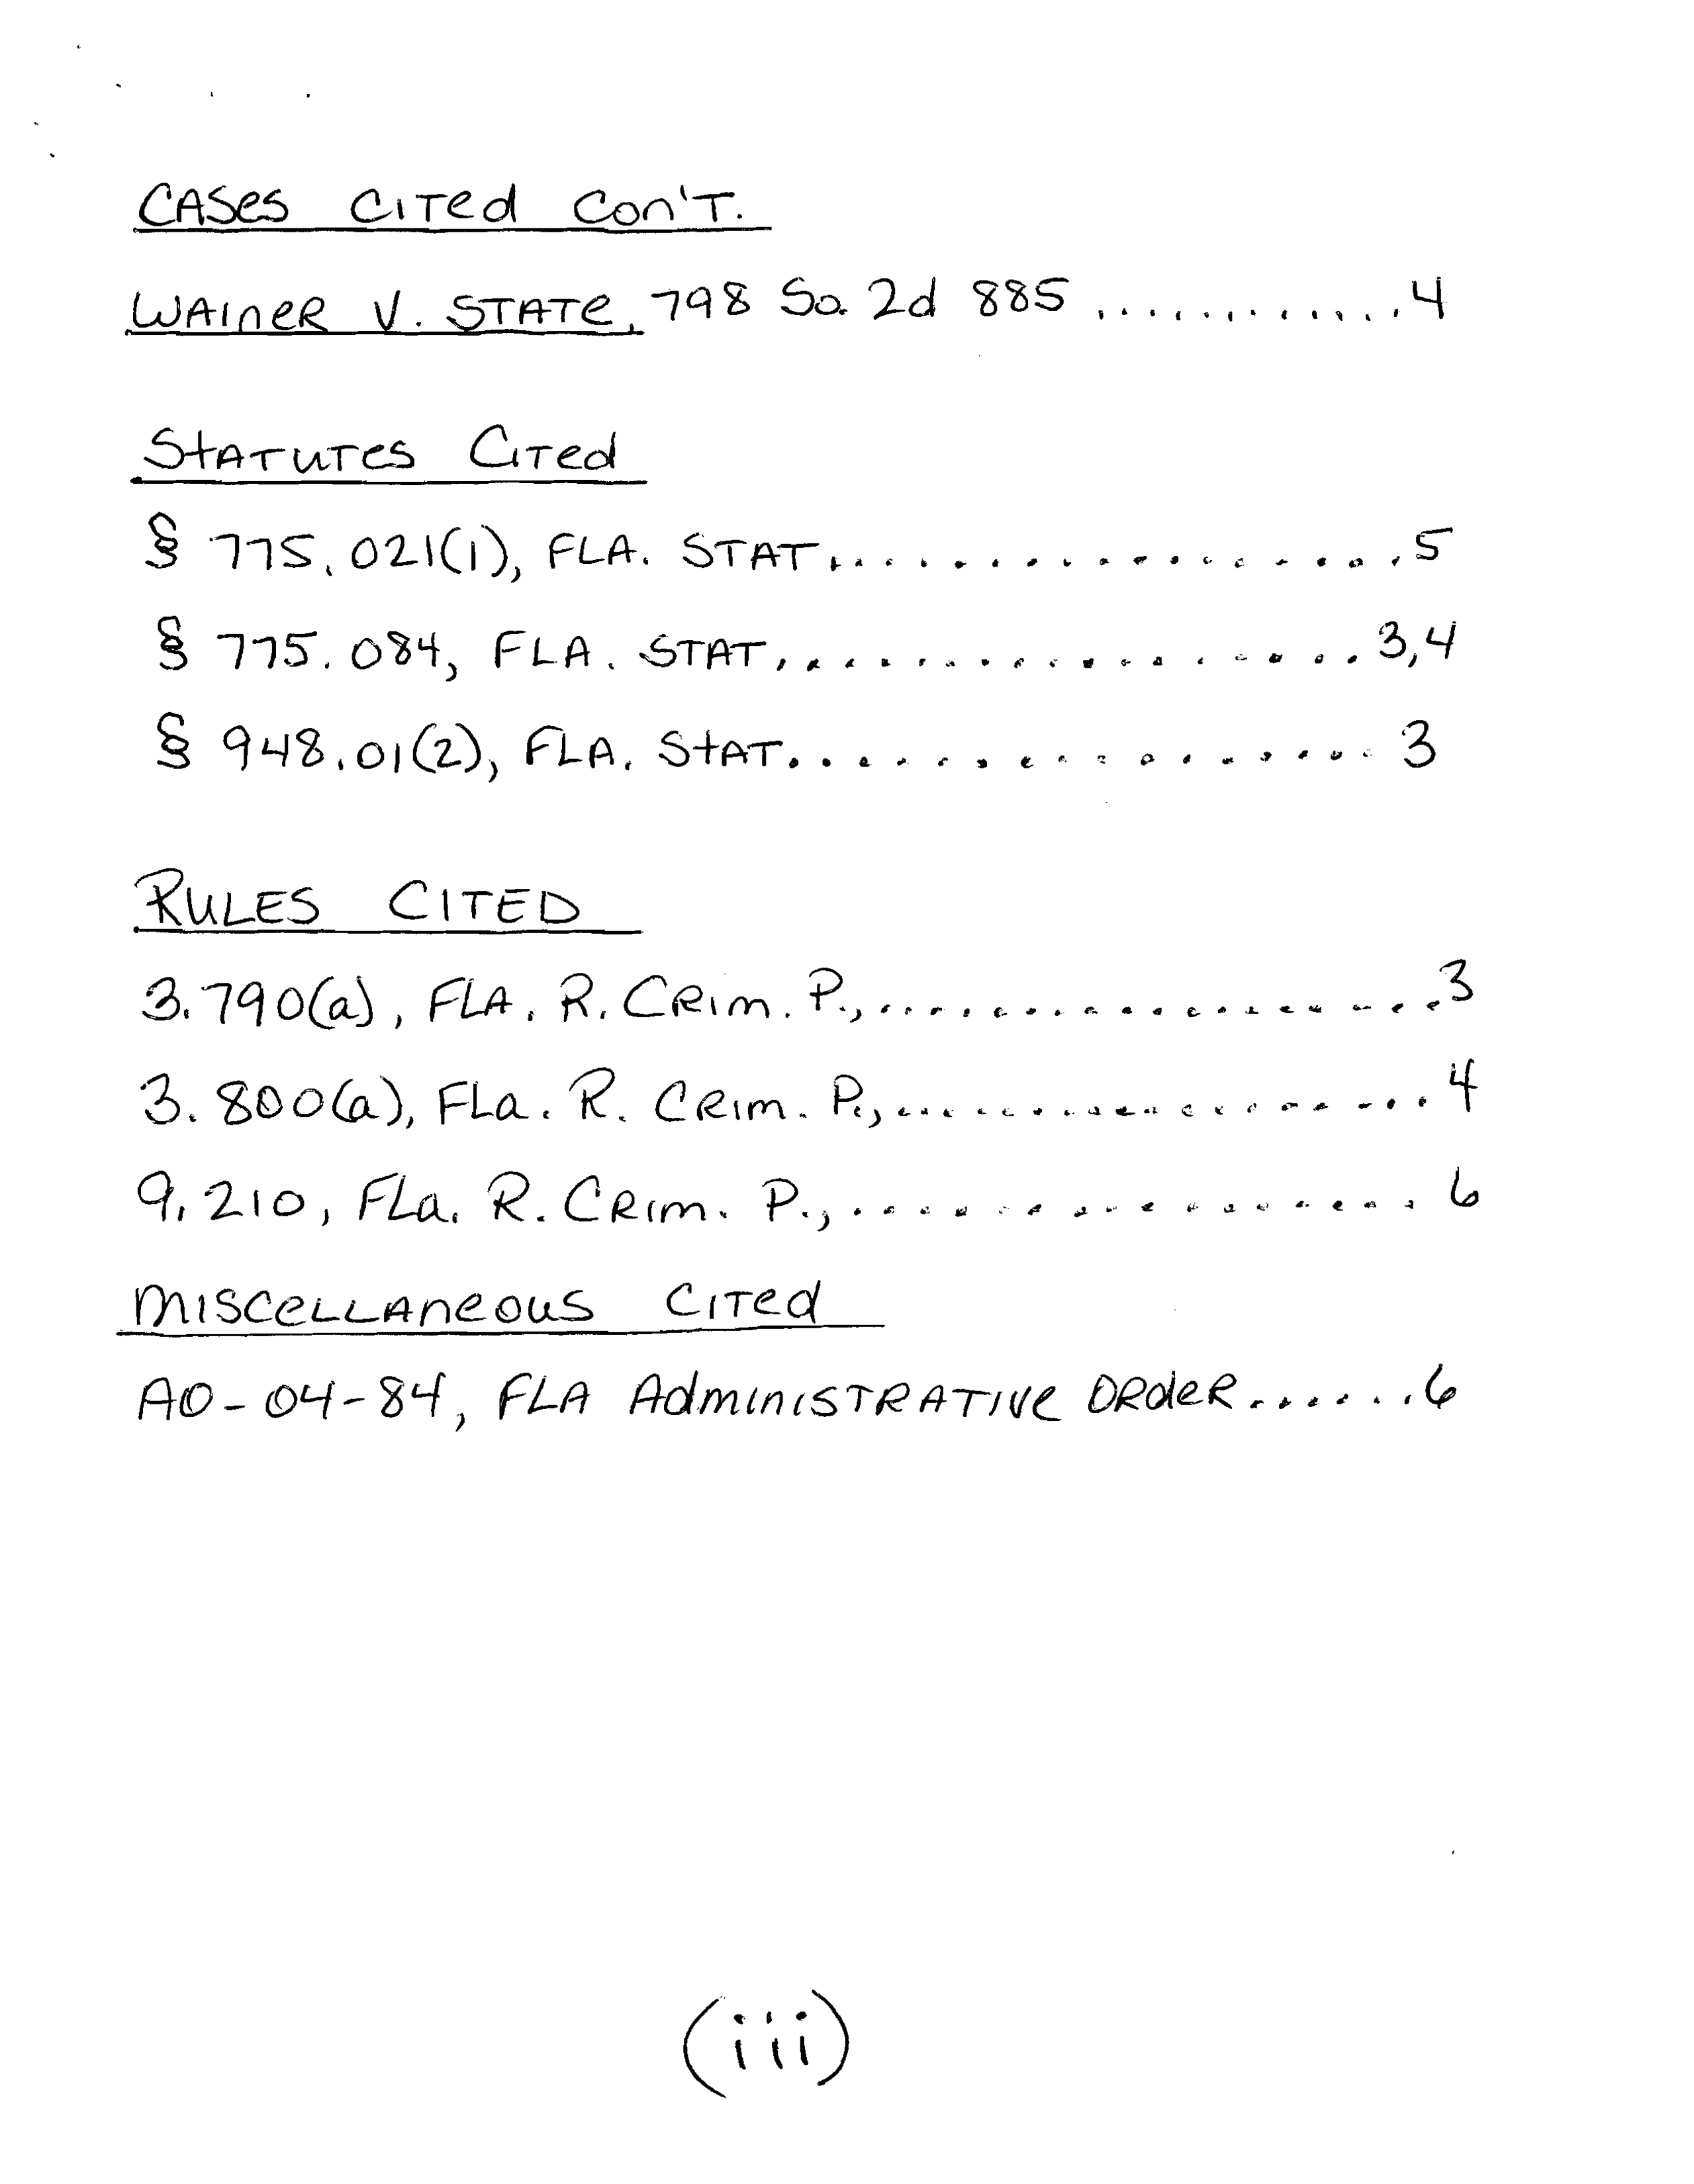 CASes CITed Con'T.
WAIneR V. STATe, 798 So. 2d 885 .............4
StATUTes CITed
§ 775.021(1), FLA. STAT...................5
§ 775.084, FLA. STAT...................3,4
§ 948.01(2), FLA. StAT.................. 3
RULES CITED
3.790(a), FLA. R. CRim. P.,...................3
3.800(a), FLa. R. CRim. P.,...................4
9.210, FLa. R. CRim. P.,.................. 6
MISCeLLAneous CITed
AO-04-84, FLA AdmINISTRATIVe ORdeR.......6
(iii)